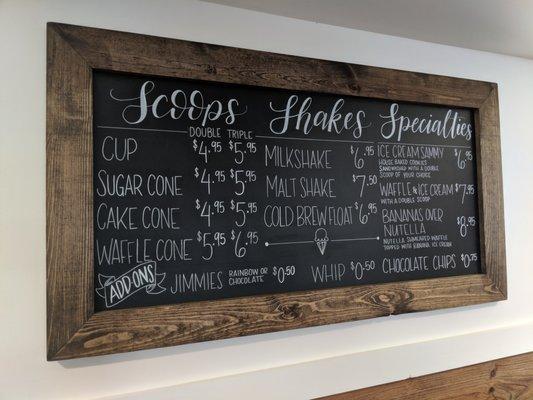 Scoops
DOUBLE TRIPLE
CUP $4.95 $5.95
SUGAR CONE $4.95 $5.95
CAKE CONE $4.95 $5.95
WAFFLE CONE $5.95 $6.95
Shakes
MILKSHAKE $6.95
MALT SHAKE $7.50
COLD BREW FLOAT $6.95
Specialties
ICE CREAM SAMMY $6.95
HOUSE BAKED COOKIES
SANDWICHED WITH A DOUBLE
SCOOP OF YOUR CHOICE
WAFFLE & ICE CREAM $7.95
WITH A DOUBLE SCOOP
BANANAS OVER
NUTELLA $8.95
NUTELLA SMEARED WAFFLE
TOPPED WITH BANANA ICE CREAM
ADD-ONS
JIMMIES RAINBOW OR
CHOCOLATE $0.50
WHIP $0.50
CHOCOLATE CHIPS $0.75